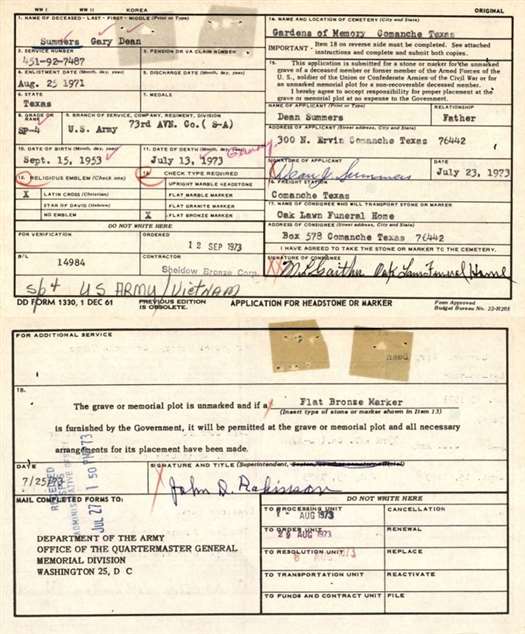 WW I WW II KOREA ORIGINAL
1. NAME OF DECEASED - LAST - FIRST - MIDDLE (Print or Type)
Summers Gary Dean
2. SERVICE NUMBER
451-92-7487
3. PENSION OR VA CLAIM NUMBER
4. ENLISTMENT DATE (Month, day, year)
Aug. 25 1971
5. DISCHARGE DATE (Month, day, year)
6. STATE
Texas
7. MEDALS
8. GRADE OR RANK
SP-4
9. BRANCH OF SERVICE, COMPANY, REGIMENT, DIVISION
U.S. Army 73rd AVN. Co. ( S-A)
10. DATE OF BIRTH (Month, day, year)
Sept. 15, 1953
11. DATE OF DEATH (Month, day, year)
July 13, 1973
Germany
12. RELIGIOUS EMBLEM (Check one)
X LATIN CROSS (Christian)
STAR OF DAVID (Hebrew)
NO EMBLEM
13. CHECK TYPE REQUIRED
UPRIGHT MARBLE HEADSTONE
FLAT MARBLE MARKER
FLAT GRANITE MARKER
X FLAT BRONZE MARKER
DO NOT WRITE HERE
FOR VERIFICATION
ORDERED
12 SEP 1973
B/L
14984
CONTRACTOR
Sheldow Bronze Corp.
14. NAME AND LOCATION OF CEMETERY (City and State)
Gardens of Memory Comanche Texas
IMPORTANT - Item 18 on reverse side must be completed. See attached
instructions and complete and submit both copies.
15. This application is submitted for a stone or marker for the unmarked
grave of a deceased member or former member of the Armed Forces of the
U. S., soldier of the Union or Confederate Armies of the Civil War or for
an unmarked memorial plot for a non-recoverable deceased member.
I hereby agree to accept responsibility for proper placement at the
grave or memorial plot at no expense to the Government.
NAME OF APPLICANT (Print or Type)
Dean Summers
RELATIONSHIP
Father
ADDRESS OF APPLICANT (Street address, City and State)
300 N. Ervin Comanche Texas 76442
SIGNATURE OF APPLICANT
Dean J Summers
DATE
July 23, 1973
16. FREIGHT STATION
Comanche Texas
17. NAME OF CONSIGNEE WHO WILL TRANSPORT STONE OR MARKER
Oak Lawn Funeral Home
ADDRESS OF CONSIGNEE (Street address, City and State)
Box 578 Comanche Texas 76442
I HAVE AGREED TO TAKE THE STONE OR MARKER TO THE CEMETERY.
SIGNATURE OF CONSIGNEE
M L Gaither Oak Lawn Funeral Home
sp4 US ARMY/VIETNAM
DD FORM 1330, 1 DEC 61
PREVIOUS EDITION IS OBSOLETE.
APPLICATION FOR HEADSTONE OR MARKER
Form Approved
FOR ADDITIONAL SERVICE
18.
The grave or memorial plot is unmarked and if a Flat Bronze Marker
(Insert type of stone or marker shown in Item 13)
is furnished by the Government, it will be permitted at the grave or memorial plot and all necessary
arrangements for its placement have been made.
DATE
7/25/73
SIGNATURE AND TITLE (Superintendent,
John D. Robinson
RECEIVED
JUL 27 1 50 PM '73
MAIL COMPLETED FORMS TO:
DEPARTMENT OF THE ARMY
OFFICE OF THE QUARTERMASTER GENERAL
MEMORIAL DIVISION
WASHINGTON 25, D C
DO NOT WRITE HERE
TO PROCESSING UNIT
AUG 1973
CANCELLATION
TO ORDER UNIT
29 AUG 1973
RENEWAL
TO RESOLUTION UNIT
AUG 1973
REPLACE
TO TRANSPORTATION UNIT
REACTIVATE
TO FUNDS AND CONTRACT UNIT
FILE